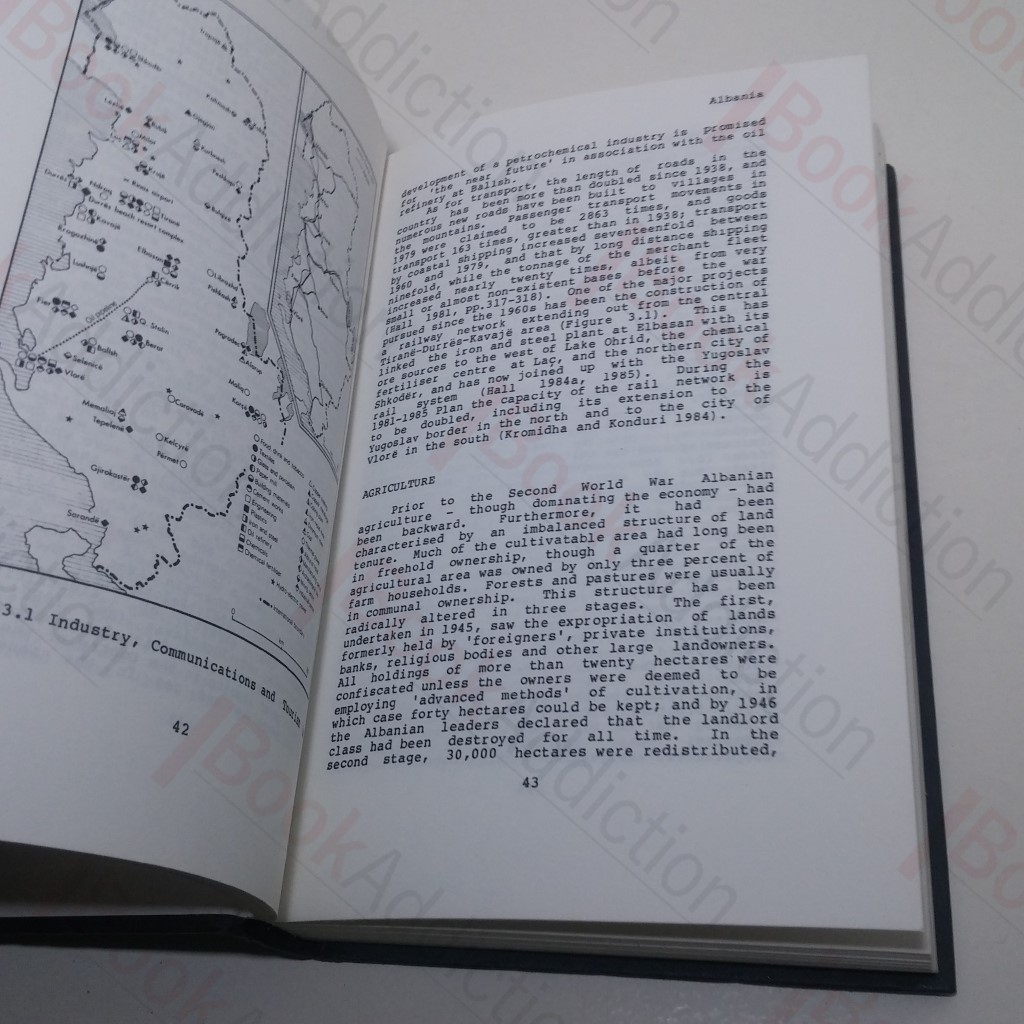 Tropojë
Shkodër
Kukës
Lezhë
Rubik
Laç
Krujë
Rinas airport
Durrës
Tiranë
Durrës beach resort complex
Kavajë
Bulqizë
Rrogozhinë
Elbasan
Lushnjë
Cërrik
Librazhd
Fier
Oil pipeline
Stalin
Pogradec
Ballsh
Berat
Selenicë
Vlorë
Maliq
Korcë
Memaliaj
Corovodë
Tepelenë
Kelcyrë
Përmet
Gjirokastër
Sarandë
Food, drink and tobacco
Textiles
Glass and porcelain
Paper mill
Building materials
Cement works
Engineering
Plastics
Iron and steel
Oil refinery
Chemicals
Chemical fertiliser
3.1 Industry, Communications and Tourism
42
Albania
development of a petrochemical industry is promised
for 'the near future' in association with the oil
refinery at Ballsh.
As for transport, the length of roads in the
country has been more than doubled since 1938, and
numerous new roads have been built to villages in
the mountains. Passenger transport movements in
1979 were claimed to be 2863 times, and goods
transport 163 times, greater than in 1938; transport
by coastal shipping increased seventeenfold between
1960 and 1979, and that by long distance shipping
ninefold, while the tonnage of the merchant fleet
increased nearly twenty times, albeit from very
small or almost non-existent bases before the war
(Hall 1981, pp.317-318). One of the major projects
pursued since the 1960s has been the construction of
a railway network extending out from the central
Tiranë-Durrës-Kavajë area (Figure 3.1). This has
linked the iron and steel plant at Elbasan with its
ore sources to the west of Lake Ohrid, the chemical
fertiliser centre at Laç, and the northern city of
Shkodër, and has now joined up with the Yugoslav
rail system (Hall 1984a, 1985). During the
1981-1985 Plan the capacity of the rail network is
to be doubled, including its extension to the
Yugoslav border in the north and to the city of
Vlorë in the south (Kromidha and Konduri 1984).
AGRICULTURE
Prior to the Second World War Albanian
agriculture - though dominating the economy - had
been backward. Furthermore, it had been
characterised by an imbalanced structure of land
tenure. Much of the cultivatable area had long been
in freehold ownership, though a quarter of the
agricultural area was owned by only three percent of
farm households. Forests and pastures were usually
in communal ownership. This structure has been
radically altered in three stages. The first,
undertaken in 1945, saw the expropriation of lands
formerly held by 'foreigners', private institutions,
banks, religious bodies and other large landowners.
All holdings of more than twenty hectares were
confiscated unless the owners were deemed to be
employing 'advanced methods' of cultivation, in
which case forty hectares could be kept; and by 1946
the Albanian leaders declared that the landlord
class had been destroyed for all time. In the
second stage, 30,000 hectares were redistributed,
43
BookAddiction